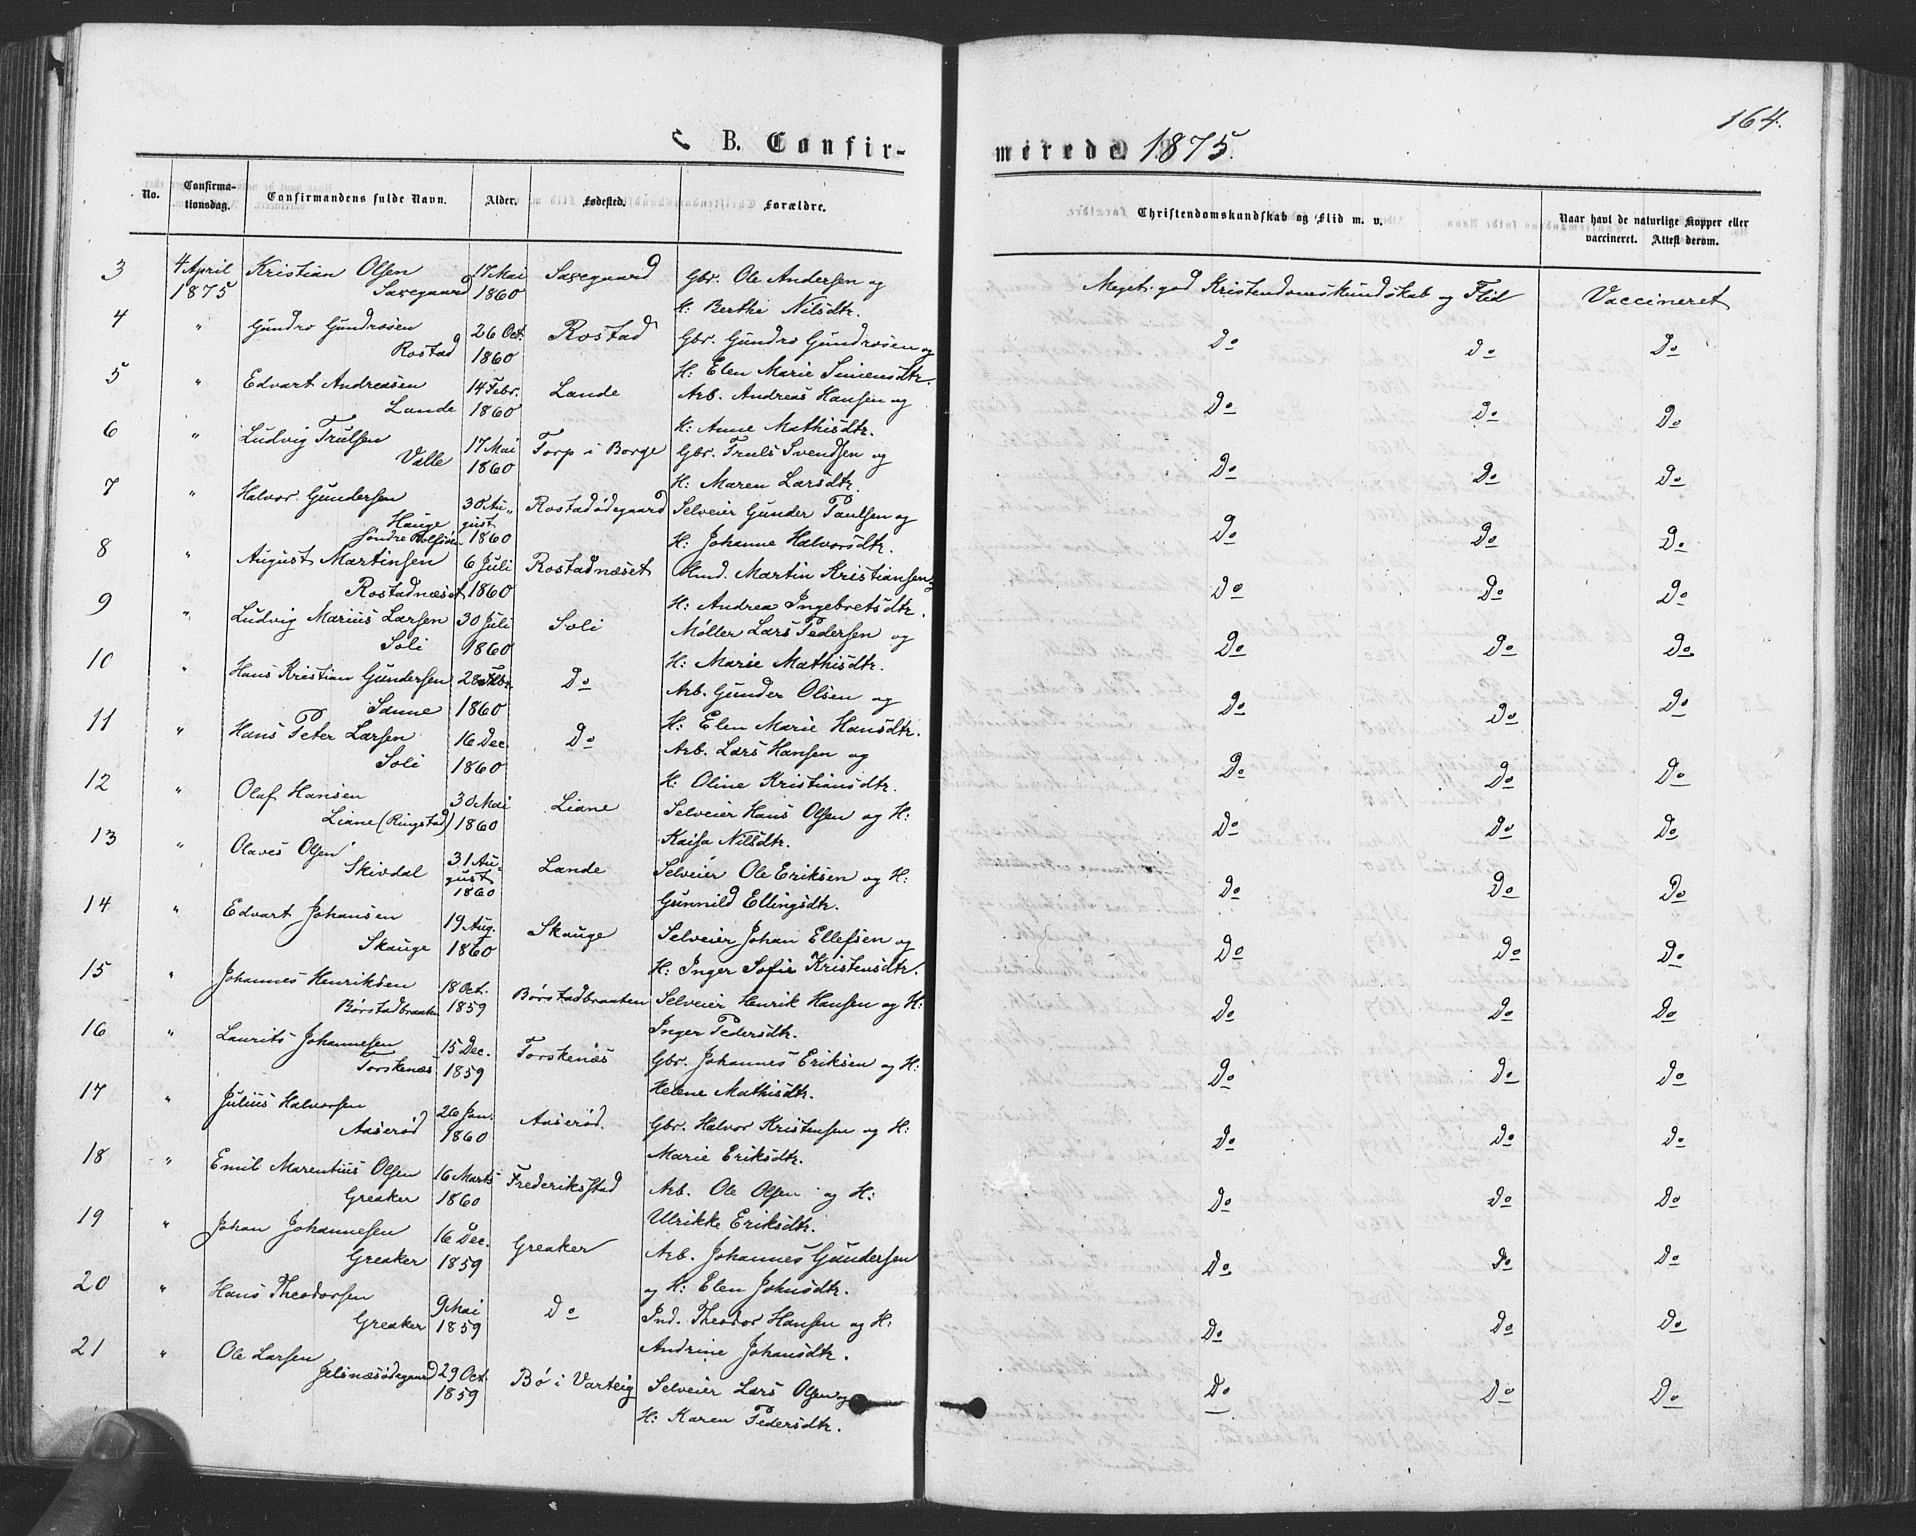 164.
B. Confir-
merede 1875.
No.
Confirma-
tionsdag.
Confirmandens fulde Navn.
Alder.
Fødested.
Forældre.
Christendomskundskab og Flid m. v.
Naar havt de naturlige Kopper eller
vaccineret. Attest derom.
3 4 April Kristian Olsen 17 Mai Saxegaard Gbr. Ole Andersen og Meget god Kristendomskundskab og Flid Vaccineret
1875 Saxegaard 1860 H: Berthe Nilsdtr.
4 " Gundro Gundrosen 26 Oct. Rostad Gbr. Gundro Gundrosen og Do Do Do
Rostad 1860 H: Elen Marie Simensdtr.
5 " Edvart Andreasen 14 Febr. Lande Arb. Andreas Hansen og Do Do Do
Lande 1860 H: Anne Mathisdtr.
6 " Ludvig Trulsen 17 Mai Torp i Borge Gbr. Truls Svendsen og Do Do Do
Valle 1860 H: Maren Larsdtr.
7 " Halvor Gundersen 30 Au- Rostadødegaard Selveier Gunder Paulsen og Do Do Do
Hauge gust
Søndre Rolfsøen 1860 H: Johanne Halvorsdtr.
8 " August Martinsen 6 Juli Rostadnæset Hmd. Martin Kristiansen og Do Do Do
Rostadnæset 1860 H: Andrea Ingebretsdtr.
9 " Ludvig Marius Larsen 30 Juli Soli Møller Lars Pedersen og Do Do Do
Soli 1860 H: Marie Mathisdtr.
10 " Hans Kristian Gundersen 28 Febr. Do Arb. Gunder Olsen og Do Do Do
Sanne 1860 H: Elen Marie Hansdtr.
11 " Hans Peter Larsen 16 Dec. Do Arb. Lars Hansen og Do Do Do
Soli 1860 H: Oline Kristiansdtr.
12 " Olaf Hansen 30 Mai Liane Selveier Hans Olsen og H: Do Do Do
Liane (Ringstad) 1860 Kaisa Nilsdtr.
13 " Olaves Olsen 31 Au- Lande Selveier Ole Eriksen og H: Do Do Do
Skivdal gust
1860 Gunnild Ellingsdtr.
14 " Edvart Johansen 19 Aug. Skauge Selveier Johan Ellefsen og Do Do Do
Skauge 1860 H: Inger Sofie Kristensdtr.
15 " Johannes Henriksen 18 Oct. Børstadbraaten Selveier Henrik Hansen og H: Do Do Do
Børstadbraaten 1859 Inger Pedersdtr.
16 " Laurits Johannesen 15 Dec. Torskenæs Gbr. Johannes Eriksen og H: Do Do Do
Torskenæs 1859 Helene Mathisdtr.
17 " Julius Halvorsen 26 Jan. Aaserød. Gbr. Halvor Kristensen og H: Do Do Do
Aaserød 1860 Marie Eriksdtr.
18 " Emil Marentius Olsen 16 Marts Frederiksstad Arb. Ole Olsen og H: Do Do Do
Greaker 1860 Ulrikke Eriksdtr.
19 " Johan Johannesen 16 Dec. Greaker Arb. Johannes Gundersen Do Do Do
Greaker 1859 og H: Elen Johnsdtr.
20 " Hans Theodorsen 9 Mai Do Ind. Theodor Hansen og H: Do Do Do
Greaker 1859 Andrine Johansdtr.
21 " Ole Larsen 29 Oct. Bø i Varteig Selveier Lars Olsen og Do Do Do
Jelsnæsødegaard 1859 H: Karen Pedersdtr.